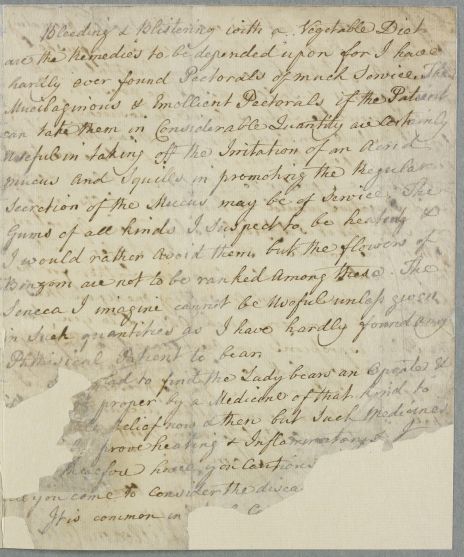 Bleeding & Blistering with a Vegetable Diet
are the Remedies to be depended upon for I have
hardly ever found Pectorals of much Service. The
Mucilaginous & Emollient Pectorals, if the Patient
can take them in Considerable Quantity are certainly
Useful in taking off the Irritation of an Acrid
Mucus and Squils in promoting the Regular
Secretion of the Mucus may be of Service. The
Gums of all kinds I suspect to be heating &
I would rather avoid them, but the flowers of
Benzoin are not to be ranked among these. The
Seneca I imagine cannot be Useful unless given
in Such quantities as I have hardly found any
Phthisical Patient to bear
glad to find the Lady bears an Opiate &
proper by a Medicine of that kind to
relief now & then but Such Medicines
prove heating & Inflammatory & I
therefore have you Cautious
you come to consider the disea
It is common in